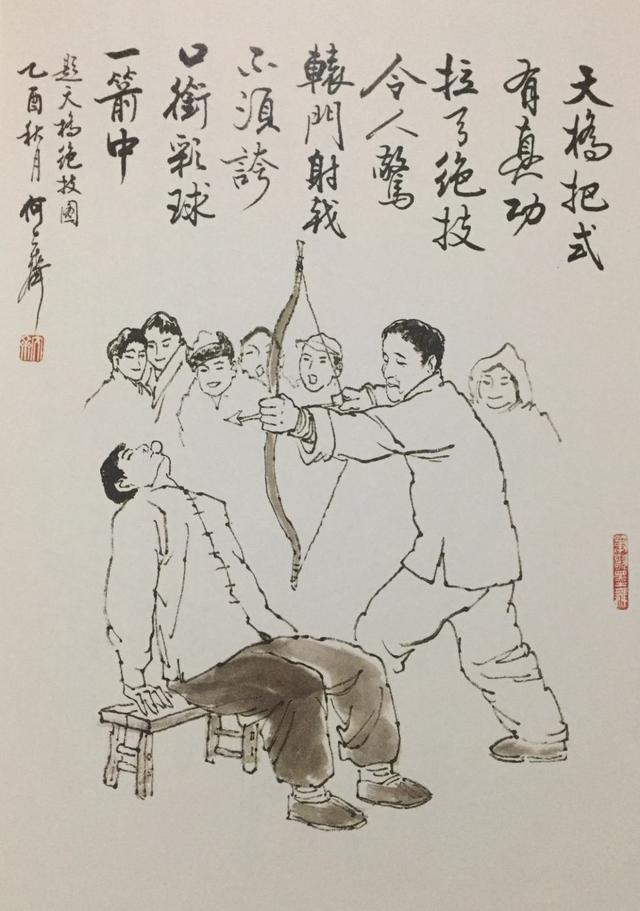 天橋把式
有真功
拉弓絶技
令人驚
轅門射戟
不須誇
口銜彩球
一箭中
題天橋絶技圖
乙酉秋月 何